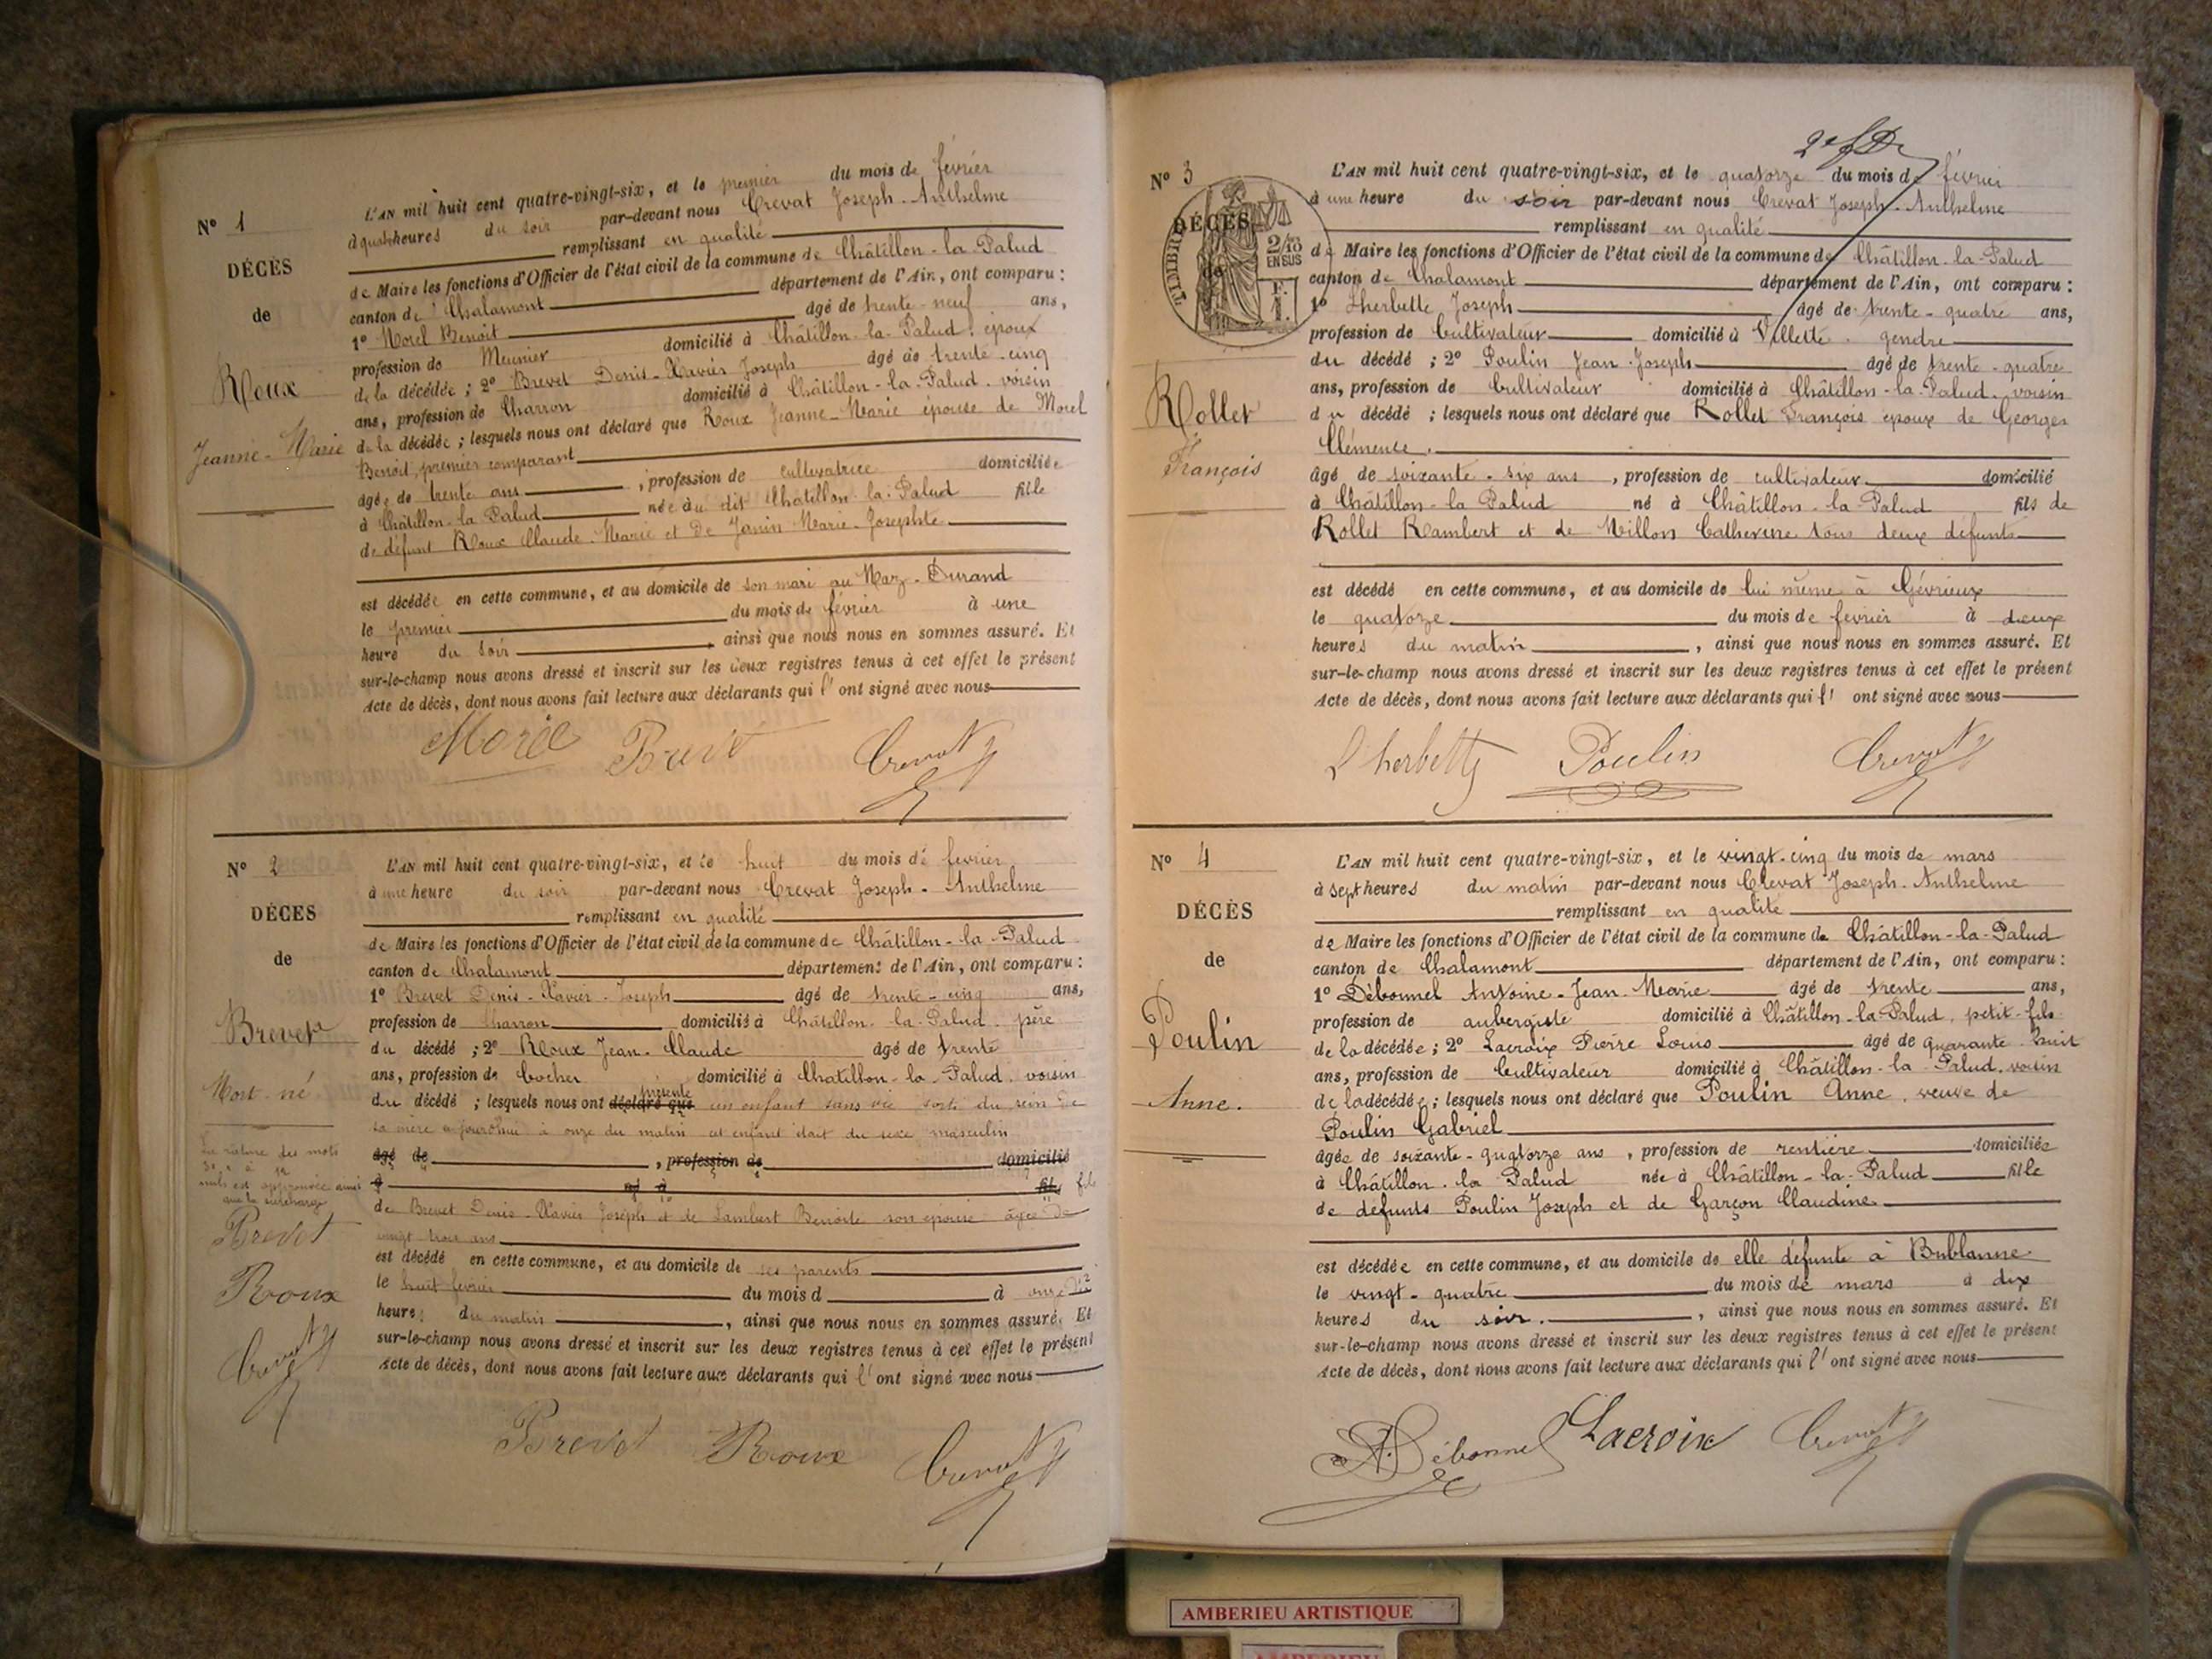 N° 1
DÉCÈS
de
Roux
Jeanne-Marie
L'AN mil huit cent quatre-vingt-six, et le premier du mois de février
à quatre heures du soir par-devant nous Crevat Joseph-Anthelme
remplissant en qualité
de Maire les fonctions d'Officier de l'état civil de la commune de Châtillon-la-Palud
canton de Chalamont département de l'Ain, ont comparu :
1° Morel Benoit âgé de trente-neuf ans,
profession de Meunier domicilié à Châtillon-la-Palud. époux
de la décédée ; 2° Brevet Denis-Xavier Joseph âgé de trente-cinq
ans, profession de Charron domicilié à Châtillon-la-Palud. voisin
de la décédée ; lesquels nous ont déclaré que Roux Jeanne-Marie épouse de Morel
Benoit, premier comparant
âgée de trente ans , profession de cultivatrice domiciliée
à Châtillon-la-Palud née au dit Châtillon-la-Palud fille
de défunt Roux Claude-Marie et De Janin Marie-Josephte
est décédée en cette commune, et au domicile de son mari au Maz-Durand
le premier du mois de février à une
heure du soir , ainsi que nous nous en sommes assuré. Et
sur-le-champ nous avons dressé et inscrit sur les deux registres tenus à cet effet le présent
Acte de décès, dont nous avons fait lecture aux déclarants qui l' ont signé avec nous
Morel Brevet Crevat
N° 2
DÉCES
de
Brevet
Mort-né
La rature des mots
nuls est approuvée ainsi
que la surcharge
Brevet
Roux
Crevat
L'AN mil huit cent quatre-vingt-six, et le huit du mois de février
à une heure du soir par-devant nous Crevat Joseph-Anthelme
remplissant en qualité
de Maire les fonctions d'Officier de l'état civil de la commune de Châtillon-la-Palud
canton de Chalamont département de l'Ain, ont comparu :
1° Brevet Denis-Xavier-Joseph âgé de trente-cinq ans,
profession de Charron domicilié à Châtillon-la-Palud. père
du décédé ; 2° Roux Jean-Claude âgé de trente
ans, profession de Cocher domicilié à Chatillon-la-Palud. voisin
présenté
du décédé ; lesquels nous ont déclaré que un enfant sans vie sorti du sein de
sa mère aujourd'hui à onze du matin cet enfant était du sexe masculin
âgé de , profession de domicilié
à né à fils fils
de Brevet Denis-Xavier Joseph et de Lambert Benoite son épouse âgée de
vingt trois ans
est décédé en cette commune, et au domicile de ses parents
le huit février du mois d à onze
heures du matin , ainsi que nous nous en sommes assuré. Et
sur-le-champ nous avons dressé et inscrit sur les deux registres tenus à cet effet le présent
Acte de décès, dont nous avons fait lecture aux déclarants qui l' ont signé avec nous
Brevet Roux Crevat
N° 3
DÉCÈS
de
TIMBRE
2/10
EN SUS
F.
1.
Rollet
François
L'AN mil huit cent quatre-vingt-six, et le quatorze du mois de février
à une heure du soir par-devant nous Crevat Joseph-Anthelme
remplissant en qualité
de Maire les fonctions d'Officier de l'état civil de la commune de Châtillon-la-Palud
canton de Chalamont département de l'Ain, ont comparu :
1° Lherbette Joseph âgé de trente-quatre ans,
profession de Cultivateur domicilié à Villette. gendre
du décédé ; 2° Poulin Jean-Joseph âgé de trente-quatre
ans, profession de Cultivateur domicilié à Châtillon-la-Palud. voisin
du décédé ; lesquels nous ont déclaré que Rollet François époux de Georges
Clémence.
âgé de soixante-six ans , profession de cultivateur domicilié
à Châtillon-la Palud né à Châtillon-la-Palud fils de
Rollet Rambert et de Millon Catherine tous deux défunts
est décédé en cette commune, et au domicile de lui même à Gévrieux
le quatorze du mois de février à deux
heures du matin , ainsi que nous nous en sommes assuré. Et
sur-le-champ nous avons dressé et inscrit sur les deux registres tenus à cet effet le présent
Acte de décès, dont nous avons fait lecture aux déclarants qui l' ont signé avec nous
Lherbette Poulin Crevat
N° 4
DÉCÈS
de
Poulin
Anne.
L'AN mil huit cent quatre-vingt-six, et le vingt-cinq du mois de mars
à sept heures du matin par-devant nous Crevat Joseph-Anthelme
remplissant en qualité
de Maire les fonctions d'Officier de l'état civil de la commune de Châtillon-la-Palud
canton de Chalamont département de l'Ain, ont comparu :
1° Débonnel Antoine-Jean-Marie âgé de trente ans,
profession de aubergiste domicilié à Châtillon-la-Palud, petit-fils
de la décédée ; 2° Lacroix Pierre Louis âgé de quarante-huit
ans, profession de Cultivateur domicilié à Châtillon-la-Palud. voisin
de la décédée ; lesquels nous ont déclaré que Poulin Anne, veuve de
Poulin Gabriel
âgée de soixante-quatorze ans , profession de rentière domiciliée
à Châtillon-la Palud née à Châtillon-la-Palud fille
de défunts Poulin Joseph et de Garçon Claudine
est décédée en cette commune, et au domicile de elle défunte à Bublanne
le vingt-quatre du mois de mars à dix
heures du soir. , ainsi que nous nous en sommes assuré. Et
sur-le-champ nous avons dressé et inscrit sur les deux registres tenus à cet effet le présent
Acte de décès, dont nous avons fait lecture aux déclarants qui l' ont signé avec nous
A. Débonnel Lacroix Crevat
AMBERIEU ARTISTIQUE
AMBERIEU